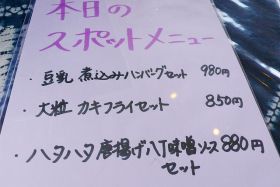 本日の
スポットメニュー
・豆乳 煮込みハンバーグセット 980円
・大粒 カキフライセット 850円
・ハタハタ唐揚げ八丁味噌ソース 880円
セット